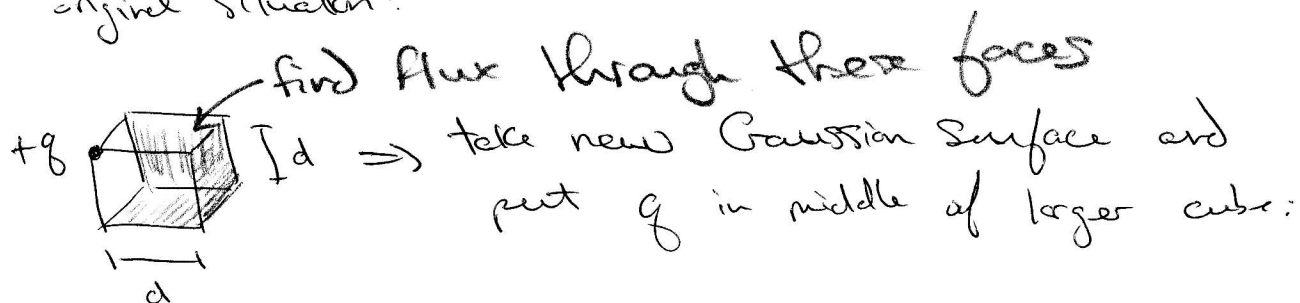 original situation:
find flux through these faces
+q
d => take new Gaussian Surface and
put q in middle of larger cube:
d